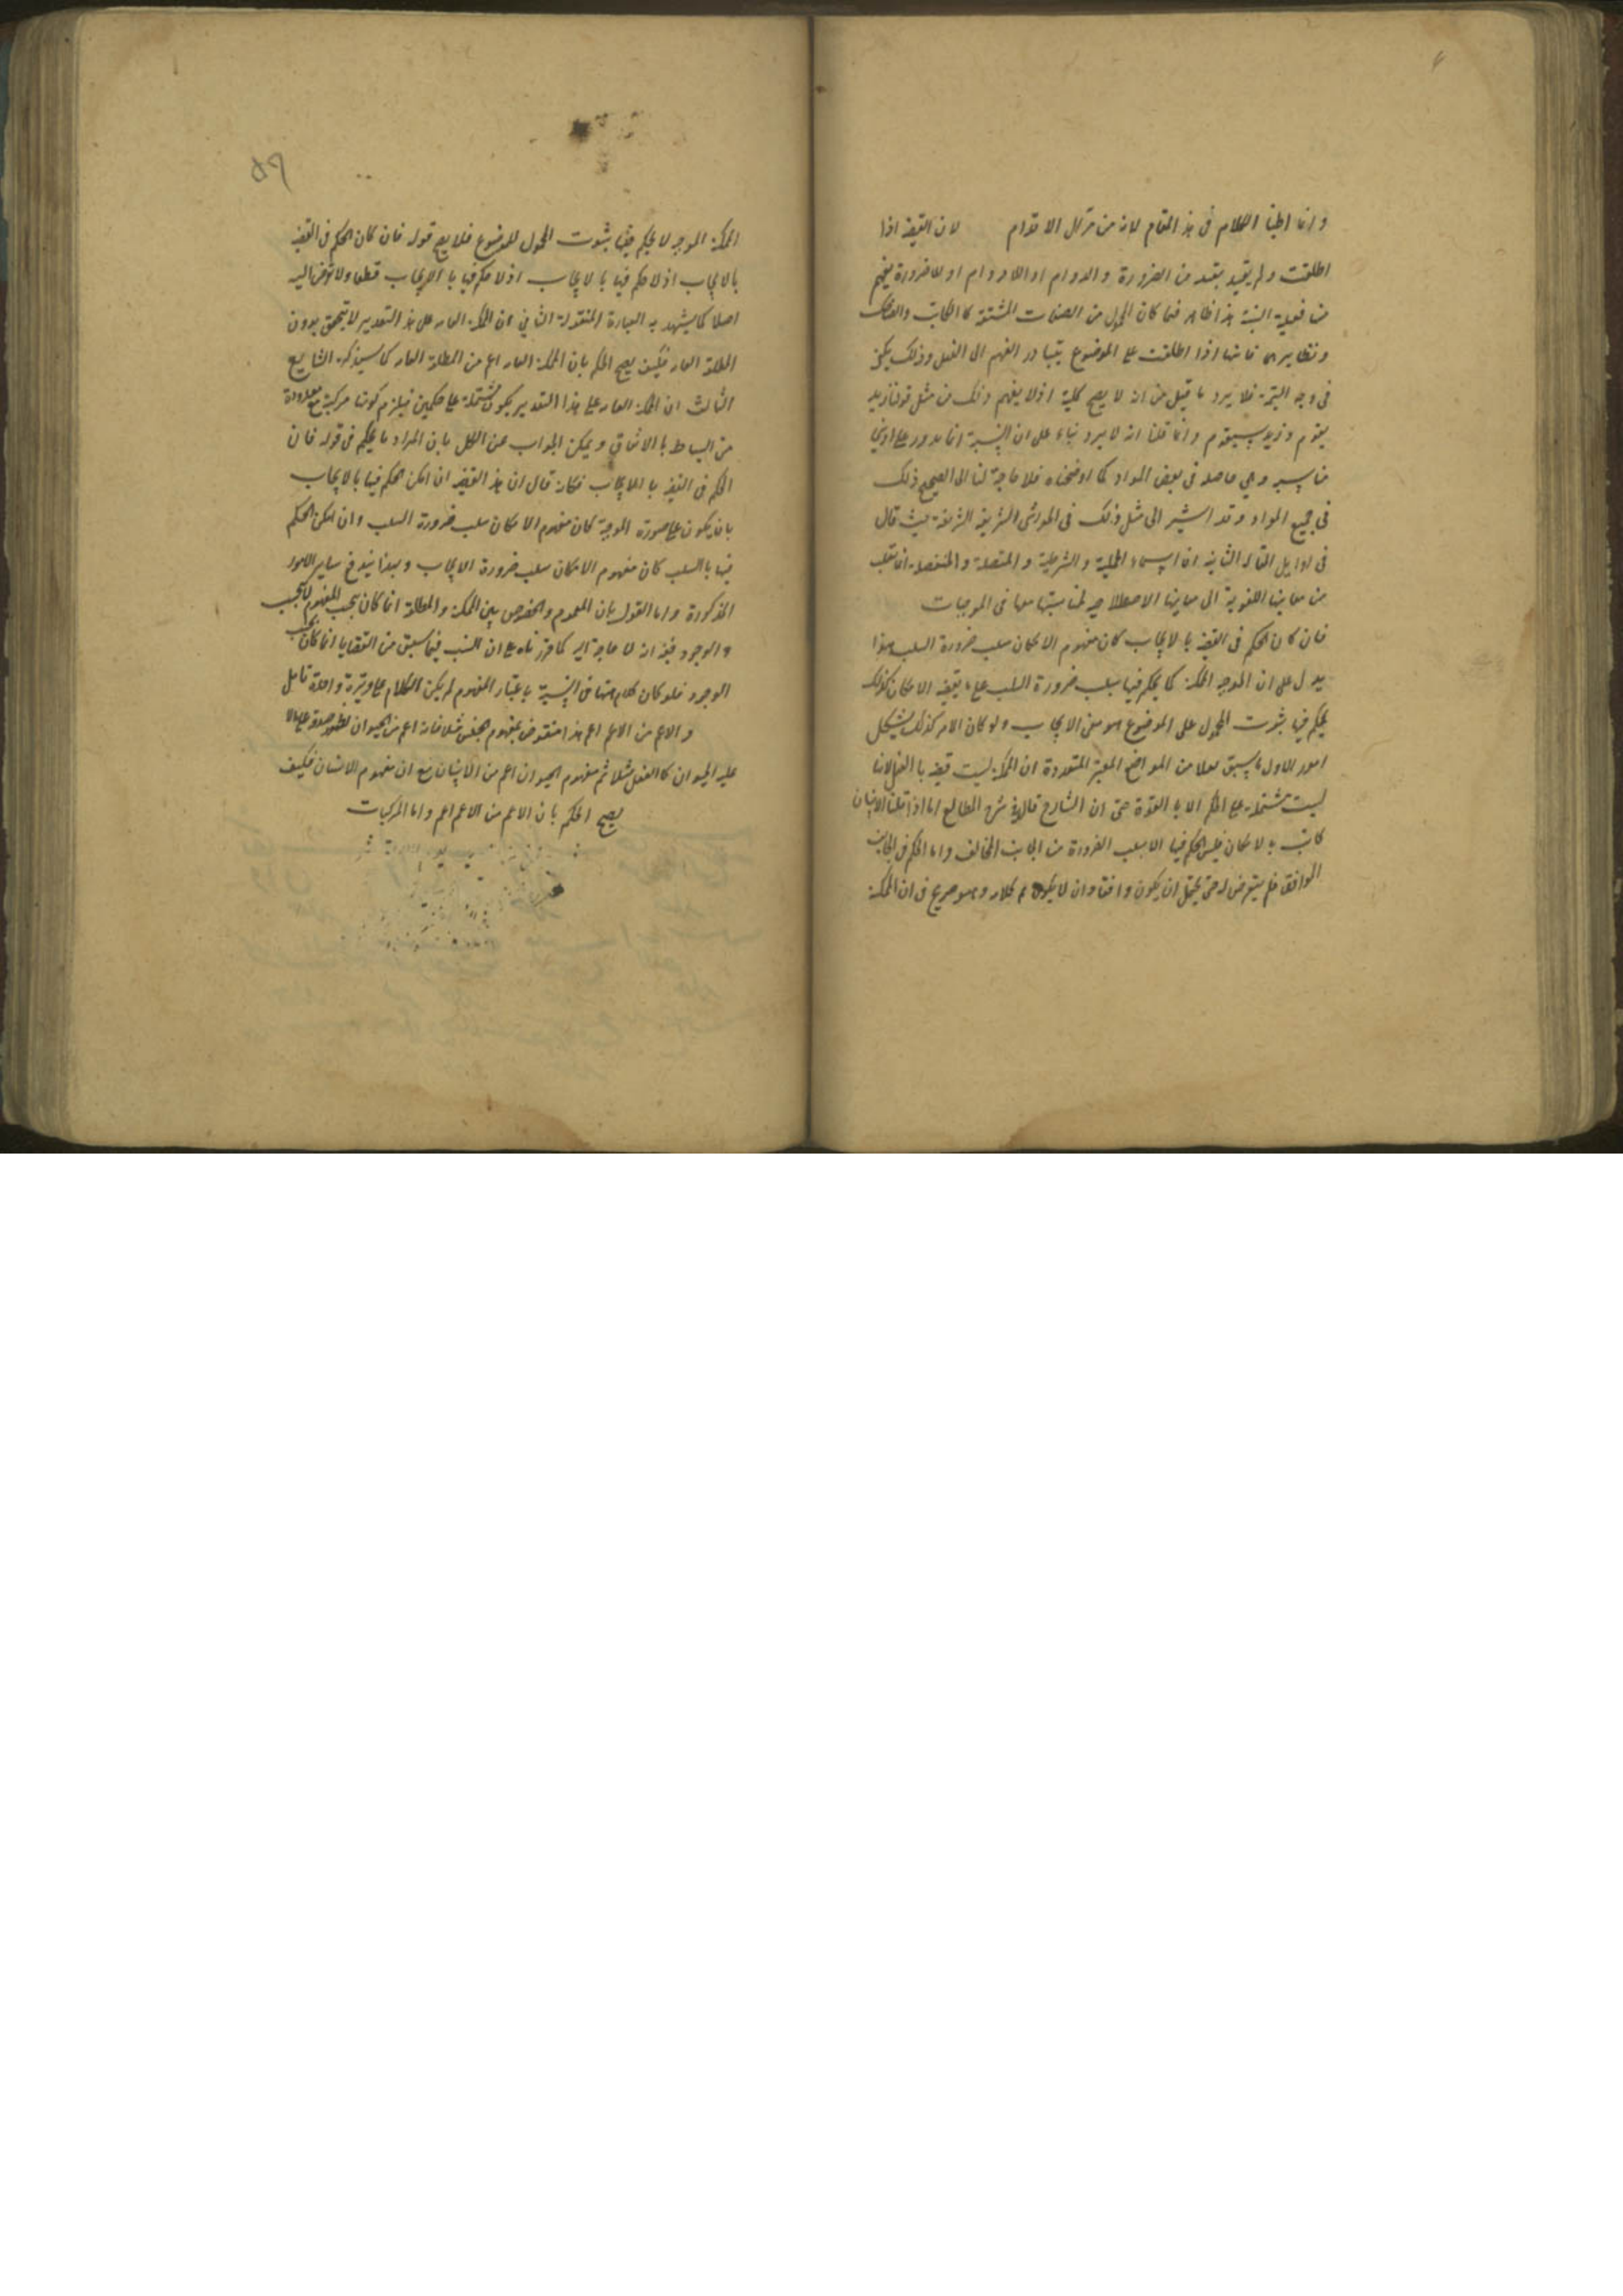 وانما اطنبنا الكلام فى هذا المقام لانه من مزال الاقدام لان القضية اذا
اطلقت ولم يقيد بقيد من الضرورة والدوام او اللادوام او اللاضرورة يفهم
منه فعلية النسبة هذا ظاهر فيما كان المحمول من الصفات المشتقة كالكاتب والضاحك
ونظايرهما فانها اذا اطلقت على الموضوع يتبادر الفهم الى الفعل وذلك يكفى
فى وجه التسمية فلا يرد ما قيل من انه لا يصح كلية اذ لا يفهم ذلك من مثل قولنا زيد
يقوم وزيد سيقوم وانما قلنا انه لا يرد بناء على ان التسمية انما يدور على ادنى
مناسبة وهى حاصلة فى بعض المواد كما اوضحناه فلا حاجة لنا الى تصحيح ذلك
فى جميع المواد وقد اشير الى مثل ذلك فى الحواشى الشريفة الشريفية حيث قال
فى اوايل المقالة الثانية ان اسماء الحملية والشرطية والمتصلة والمنفصلة انما نقلت
من معانيها اللغوية الى معانيها الاصطلاحية لمناسبتها معها فى الموجبات
فان كان الحكم فى القضية بالايجاب كان مفهوم الامكان سلب ضرورة السلب هذا
يدل على ان الموجبة الممكنة كما يحكم فيها بسلب ضرورة السلب على ما يقتضيه الامكان كذلك
يحكم فيها بثبوت المحمول على الموضوع هو معنى الايجاب ولو كان الامر كذلك يشكل
امور الاول ما سبق معلا من المواضع المعتبرة المتعددة ان الممكنة ليست قضية بالفعل لانها
ليست مشتملة على الحكم الا بالقوة حتى ان الشارح قال فى شرح المطالع اما اذا قلنا الانسان
كاتب بالامكان فليس الحكم فيها الا بسلب الضرورة من الجانب المخالف واما الحكم فى الجانب
الموافق فلم يتعرض له حتى يحتمل ان يكون واقعا وان لا يكون تم كلامه وهو صريح فى ان الممكنة
٥٩
الممكنة الموجبة لا يحكم فيها بثبوت المحمول للموضوع فلا يصح قوله فان كان الحكم فى القضية
بالايجاب اذ لا حكم فيها بالايجاب اذ لا حكم فيها بالايجاب قطعا ولا تعرض اليه
اصلا كما يشهد به العبارة المنقولة الثانى ان الممكنة العامة على هذا التقدير لا يتحقق بدون
المطلقة العامة فكيف يصح الحكم بان الممكنة العامة اعم من المطلقة العامة كما سيذكره الشارح
الثالث ان الممكنة العامة على هذا التقدير يكون مشتملة على حكمين فيلزم كونها مركبة مع معدودة
من البسايط بالاتفاق ويمكن الجواب عن الكل بان المراد ما يحكم فى قوله فان
الحكم فى القضية بالايجاب فكانه قال ان هذه القضية ان امكن الحكم فيها بالايجاب
بان يكون على صورة الموجبة كان مفهوم الامكان سلب ضرورة السلب وان امكن الحكم
فيها بالسلب كان مفهوم الامكان سلب ضرورة الايجاب وبهذا يندفع ساير الامور
المذكورة واما القول بان العموم والخصوص بين الممكنة والمطلقة انما كان بحسب المفهوم لا بحسب
الوجود ففيه انه لا حاجة اليه كما قررناه على ان النسب فيما سبق من القضايا انما كان بحسب
الوجود فلو كان كلام ههنا فى النسبة باعتبار المفهوم لم يكن الكلام على وتيرة واحدة تامل
والاعم من الاعم اعم هذا منقوض بمفهوم الجنس مثلا فانه اعم من الحيوان لظهور صدقه على مالا
عليه الحيوان كالعقل مثلا ثم مفهوم الحيوان اعم من الانسان مع ان مفهوم الانسان فكيف
يصح الحكم بان الاعم من الاعم اعم واما المركبات